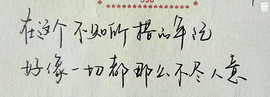 在这个不知所措的年纪
好像一切都那么不尽人意